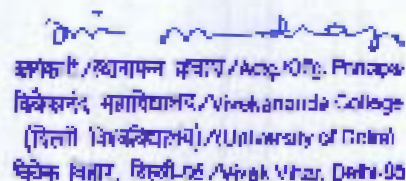 कार्यकारी/स्थानापन्न प्राचार्य/Actg./Offg. Principal
विवेकानंद महाविद्यालय/Vivekananda College
(दिल्ली विश्वविद्यालय)/(University of Delhi)
विवेक विहार, दिल्ली-95/Vivek Vihar, Delhi-95